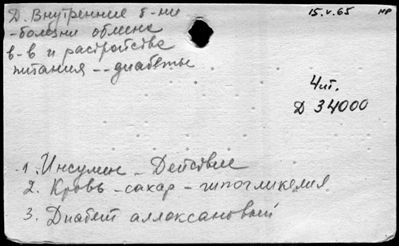 Д. Внутренние б-ни
15.V.65
нр
-болезни обмена
в-в и расстройства
питания -- диабеты
Чит.
Д 34000
1. Инсулин - Действие
2. Кровь - сахар - гипогликемия
3. Диабет аллоксановый